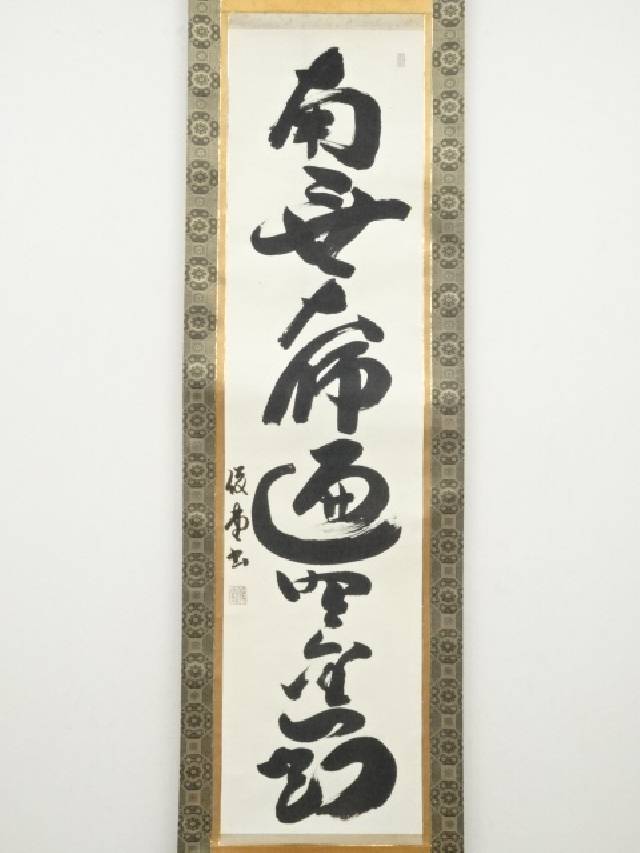 南無大師遍照金剛
俊堂書